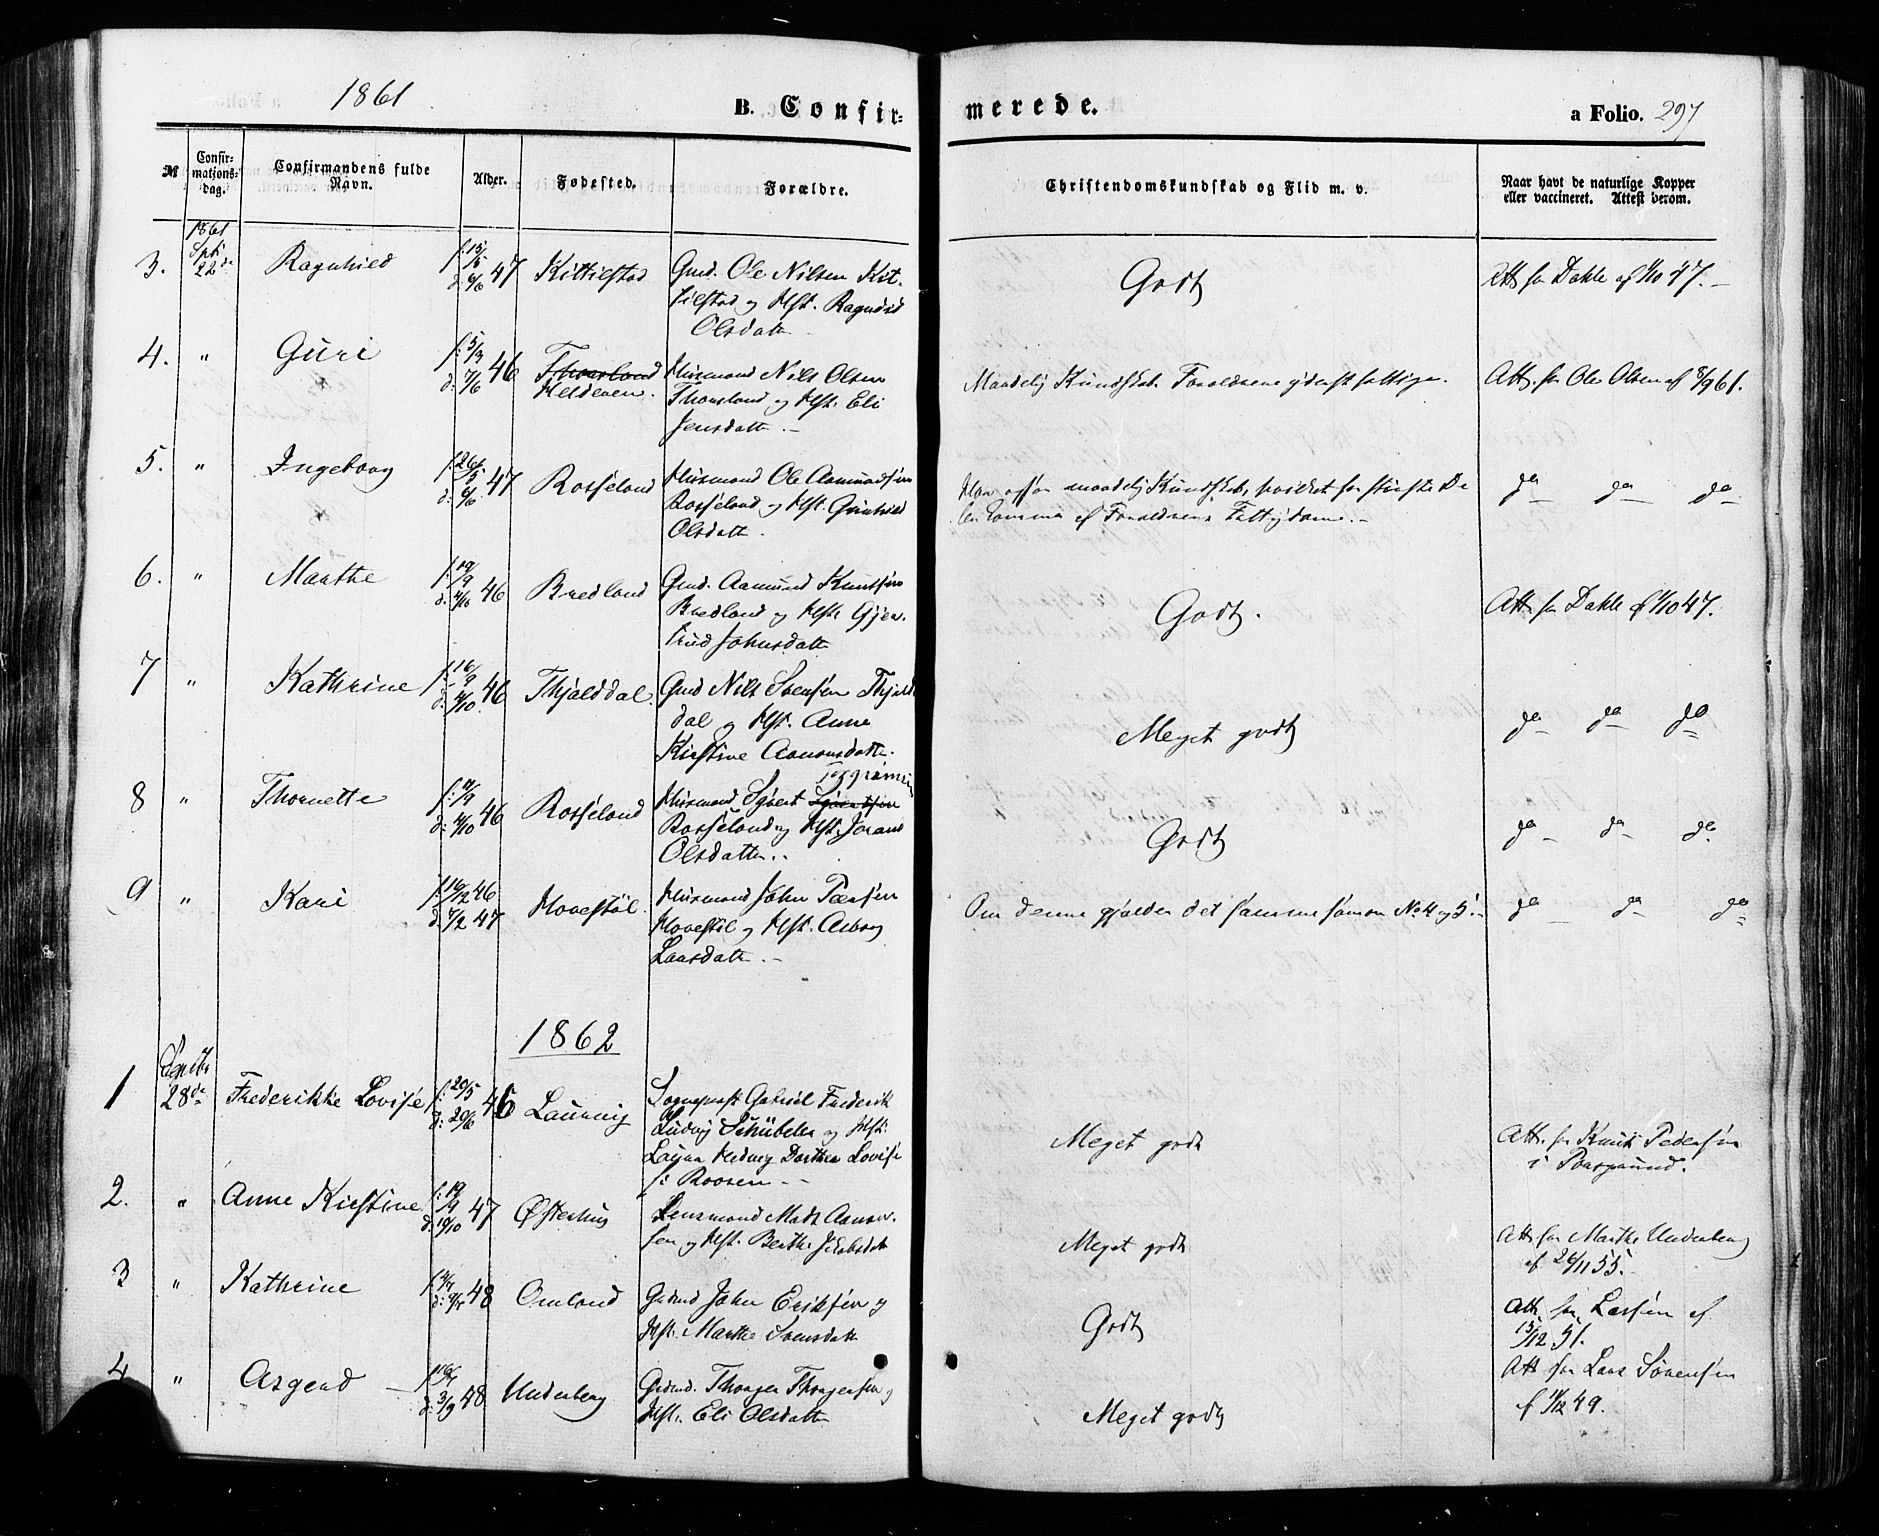 1861
B. Confir-
merede.
a Folio. 297
M
Confir-
mations-
dag.
Confirmandens fulde
Navn.
Alder.
Fødested.
Forældre.
Christendomskundskab og Flid m. v.
Naar havt de naturlige Kopper
eller vaccineret. Attest derom.
1861
3. Spt 22de Ragnhild 47 Kittilstad Gmd. Ole Nilsen Kit-
tilstad og Hst. Ragnhild
Olsdatter
Godt
Att. fra Dahle af 1/10 47.
4. " Guri f: 5/3 d: 7/6 46 Thorsland
Heldeven. Husmand Nils Olsen
Thorsland og Hst. Eli
Jensdatter. -
Maadelig Kundskab. Forældrene yderst fattige.
Att. fra Ole Olsen af 8/9 61.
5. " Ingeborg 47 Rosseland Husmand Ole Aamundsen
Rosseland og Hst. Gunhild
Olsdatter.
Har ogsaa maadelig Kundskab, hvilket for største De-
len kommer af Forældrenes Fattigdom. -
do do do
6. " Marthe f: 19/9 46 Bredland Gmd. Aamund Knutsen
Bredland og Hst. Gjer-
trud Johnsdatter
Godt.
Att. fra Dahle af 1/10 47.
7 " Kathrine f: 16/9 46 Thjalddal Gmd Nils Svensen Thjald
dal og Hst. Anne
Kirstine Aanonsdatter.
Meget godt
do do do
8 " Thornette 46 Rosseland Husmand Sjvert Sjvertsen
Rosseland og Hst. Joran
Olsdatter. -
Godt
do do do
9 " Kari f: 16/12 46
d: 7/2 47 Hovestøl. Husmand John Pærsen
Hovestøl og Hst. Asborg
Larsdatter. -
Om denne gjælder det samme som om No 4 og 5. -
do do do
1862
1 Septbr
28de Frederikke Lovise f: 20/5 d: 20/6 46 Laurvig Sogneprest Gabriel Frederik
Ludvig Schübeler og Hst.
Laura Hedvig Dorthea Lovise
f: Roosen - -
Meget godt
Att. fra Knut Pedersen
i Porsgrund.
2. " Anne Kirstine f: 19/9 d: 10/10 47 Østerhus Lensmand Mads Aanon-
sen og Hst. Berthe Jakobsdatter
Meget godt
Att fra Marthe Underberg
af 26/11 55.
3 " Kathrine 48 Omland Gmd John Eriksen og
Hst. Marthe Svensdatter
Godt
Att. fra Larsen af
15/12 51.
4 " Asgerd 48 Underberg Gmd. Thorger Thorgersen og
Hst. Eli Olsdatter
Meget godt
Att fra Lars Sørensen
af 1/12 49.